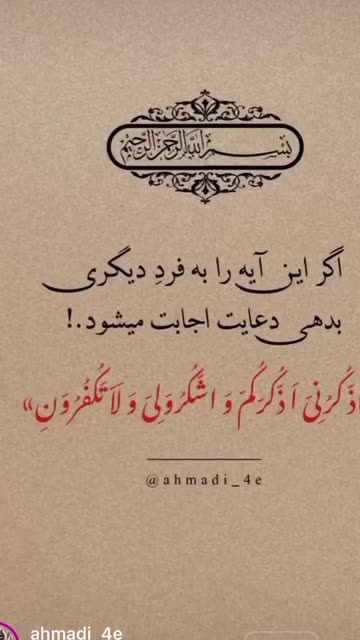 بسم الله الرحمن الرحیم
اگر این آیه را به فردِ دیگری
بدهی دعایت اجابت میشود.!
ذْکُرُنِیَ اَذْکُرَکُمَ وَ اشْکُرُولِیَ وَ لاَ تَکْفُرُوَنِ»
@ahmadi_4e
ahmadi_4e